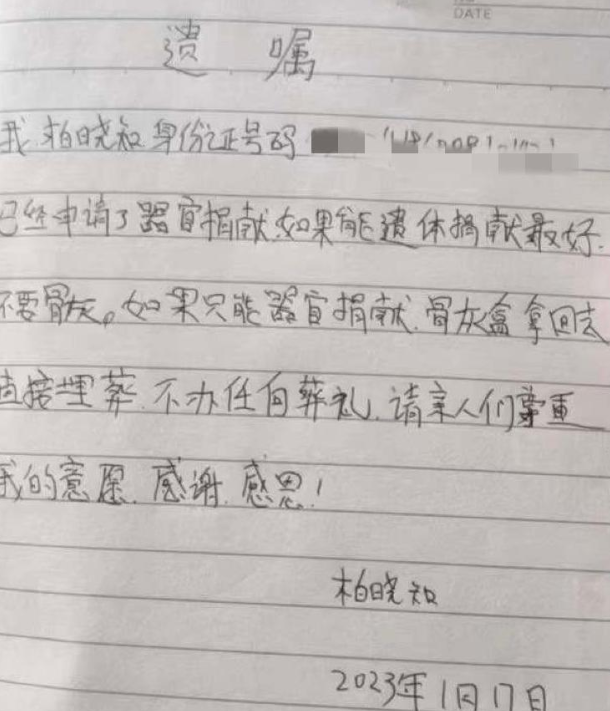 DATE
遗嘱
我.柏晓知身份证号码
已经申请了器官捐献.如果能遗体捐献最好.
不要骨灰。如果只能器官捐献.骨灰盒拿回去
直接埋葬.不办任何葬礼.请亲人们尊重
我的意愿.感谢.感恩!
柏晓知
2023年1月17日